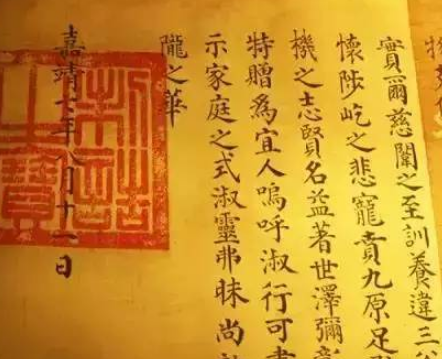 實爾慈闈之至訓養違三
懷陟屺之悲寵賁九原足
機之志賢名益著世澤彌
特贈為宜人嗚呼淑行可
示家庭之式淑靈弗昧尚
隴之華
嘉靖七年八月十一日
制誥之寶